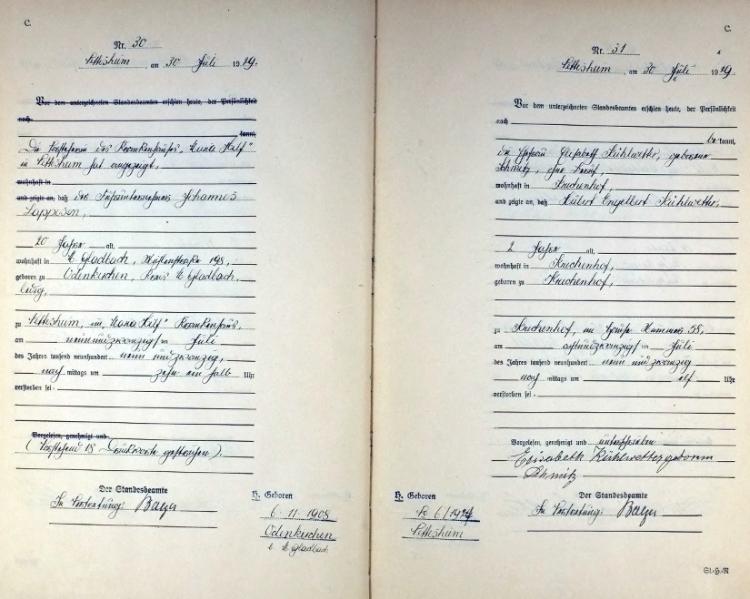 C.
Nr. 30
am 30 Juli 1929.
Vor dem unterzeichneten Standesbeamten erschien heute, der Persönlichkeit
nach
kannt,
Die Vorsteherin des Krankenhauses „Maria Hilf"
in hat angezeigt,
wohnhaft in
und zeigte an, daß der Johannes
20 Jahre alt,
wohnhaft in M Gladbach, 198,
geboren zu Odenkirchen, Kreis M Gladbach,
ledig,
zu im „Maria Hilf" Krankenhaus,
am neunundzwanzigsten Juli
des Jahres tausend neunhundert neun und zwanzig,
nach mittags um zehn ein halb Uhr
verstorben sei.
Vorgelesen, genehmigt und
(Vorstehend 18 Druckworte gestrichen)
Der Standesbeamte
In Vertretung: Bayer
H. Geboren
6. 11. 1908
Odenkirchen
b. M. Gladbach
C.
Nr. 31
am 30 Juli 1929
Vor dem unterzeichneten Standesbeamten erschien heute, der Persönlichkeit
nach
be kannt,
die Ehefrau Elisabeth Kühlwetter, geborene
Schmitz, ohne Beruf,
wohnhaft in
und zeigte an, daß Hubert Engelbert Kühlwetter,
2 Jahre alt,
wohnhaft in
geboren zu
zu 58,
am achtundzwanzigsten Juli
des Jahres tausend neunhundert neun und zwanzig
nach mittags um elf Uhr
verstorben sei.
Vorgelesen, genehmigt und unterschrieben
Elisabeth Kühlwetter geborene
Schmitz
Der Standesbeamte
In Vertretung: Bayer
H. Geboren
St.-H.-R